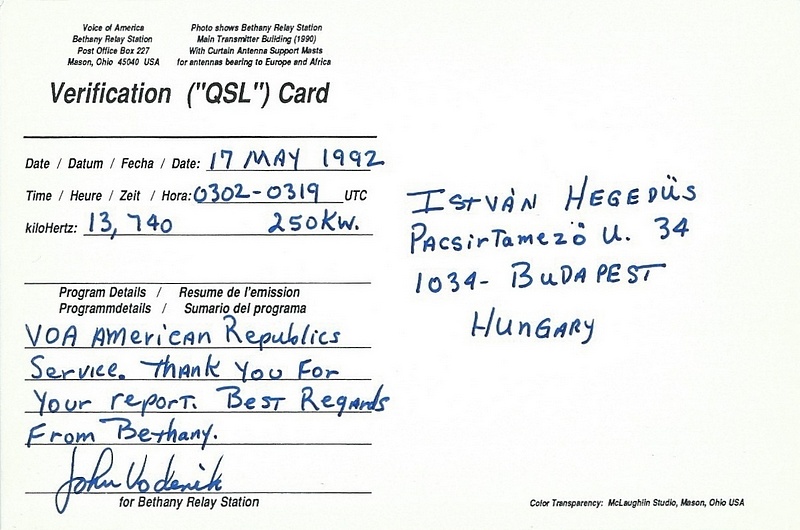 Voice of America
Bethany Relay Station
Post Office Box 227
Mason, Ohio 45040 USA
Photo shows Bethany Relay Station
Main Transmitter Building (1990)
With Curtain Antenna Support Masts
for antennas bearing to Europe and Africa
Verification ("QSL") Card
Date / Datum / Fecha / Date: 17 MAY 1992
Time / Heure / Zeit / Hora: 0302-0319 UTC
kiloHertz: 13,740 250KW.
Program Details / Resume de l'emission
Programmdetails / Sumario del programa
VOA American Republics
Service. Thank You For
Your report. Best Regards
From Bethany.
John Vodenik
for Bethany Relay Station
István Hegedüs
Pacsirtamezö U. 34
1034- Budapest
Hungary
Color Transparency: McLaughlin Studio, Mason, Ohio USA